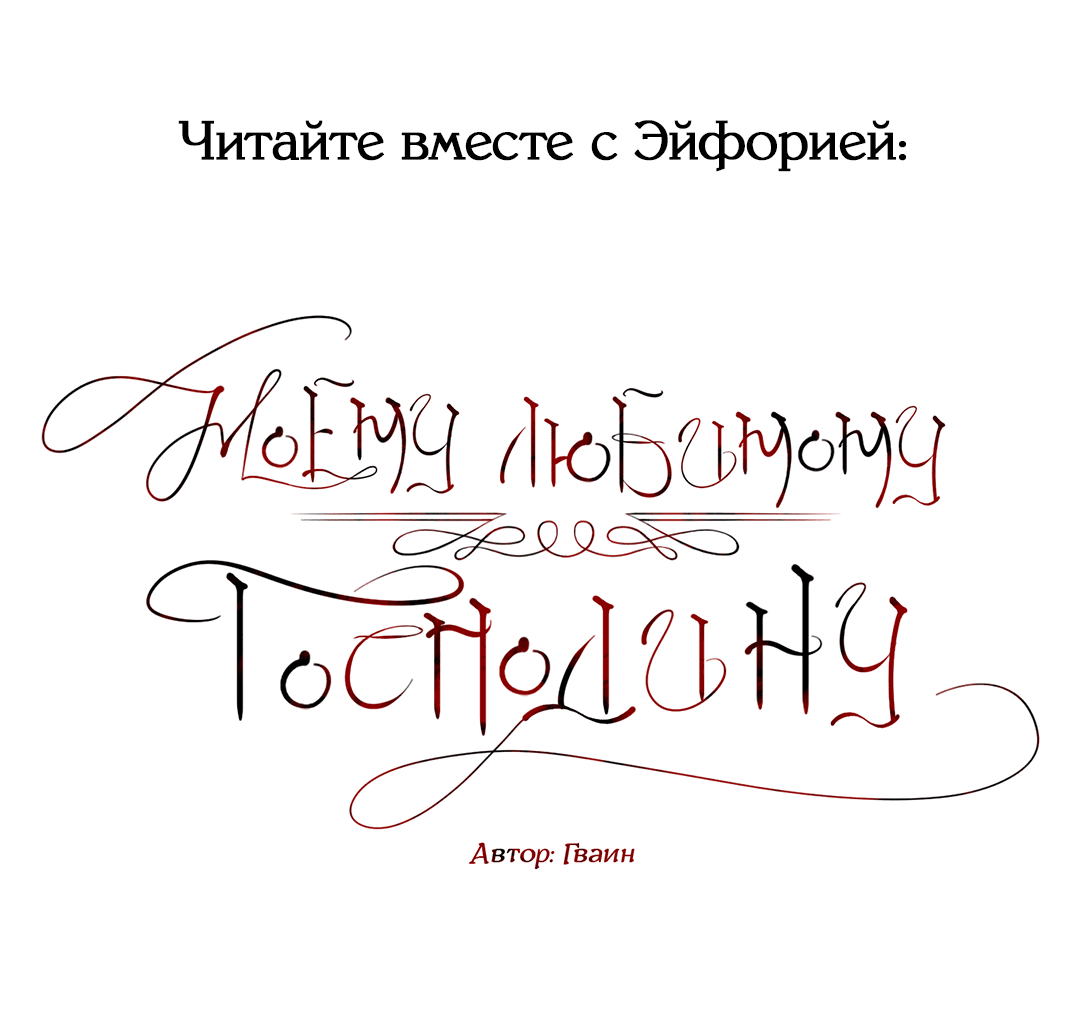 Читайте вместе с Эйфорией:
Моему любимому
Господину
Автор: Гваин